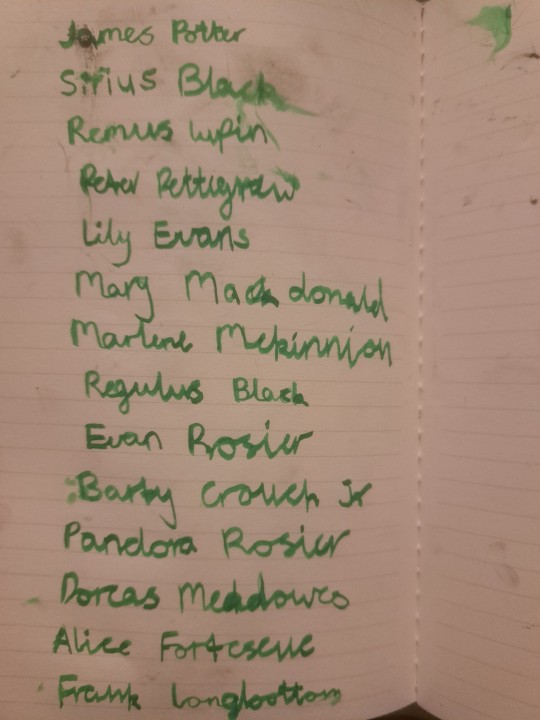 James Potter
Sirius Black
Remus Lupin
Peter Pettigrew
Lily Evans
Mary Mack donald
Marlene Mckinnion
Regulus Black
Evan Rosier
Barty Crouch Jr
Pandora Rosier
Dorcas Meaddowes
Alice Fortescue
Frank Longbottom